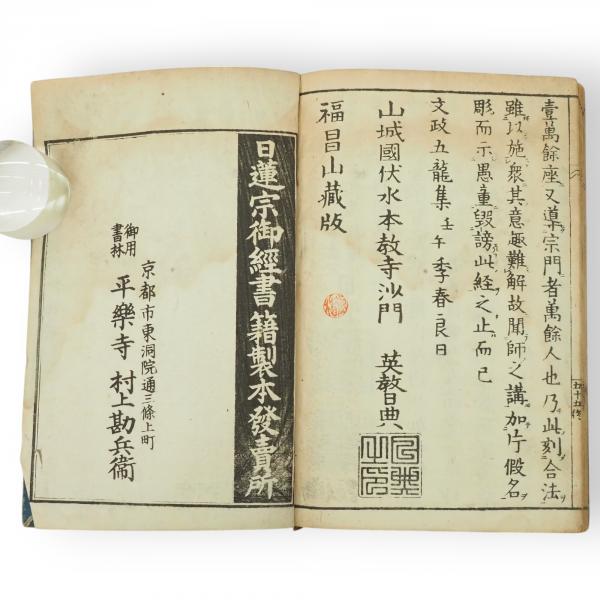 壹萬餘座又導宗門者萬餘人也乃此刻合法
雖以施衆其意趣難解故聞師之講加片假名
彫而示愚童毀謗此経之止而已
文政五龍集壬午季春良日
山城國伏水本教寺沙門 英智典
福昌山藏版
日蓮宗御經書籍製本發賣所
御用書林
京都市東洞院通三條上町
平樂寺 村上勘兵衞